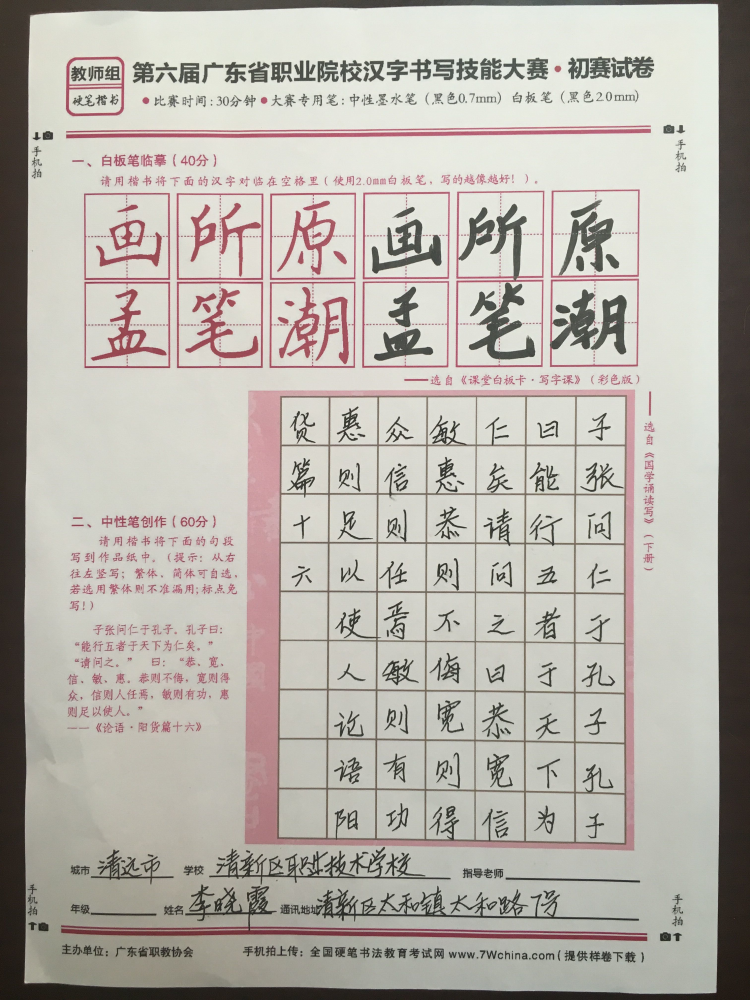 教师组
硬笔楷书
第六届广东省职业院校汉字书写技能大赛·初赛试卷
●比赛时间:30分钟●大赛专用笔:中性墨水笔（黑色0.7mm）白板笔（黑色2.0mm）
手机拍
手机拍
一、白板笔临摹（40分）
请用楷书将下面的汉字对临在空格里（使用2.0mm白板笔，写的越像越好！）。
画所原画所原
孟笔潮孟笔潮
——选自《课堂白板卡·写字课》（彩色版）
——选自《国学诵读写》（下册）
子张问仁于孔子孔子
曰能行五者于天下为
仁矣请问之曰恭宽信
敏惠恭则不侮宽则得
众信则任焉敏则有功
惠则足以使人论语阳
货篇十六
二、中性笔创作（60分）
请用楷书将下面的句段
写到作品纸中。（提示：从右
往左竖写；繁体、简体可自选，
若选用繁体则不准漏用;标点免
写！）
子张问仁于孔子，孔子曰：
“能行五者于天下为仁矣。”
“请问之。” 曰：“恭、宽、
信、敏、惠。恭则不侮，宽则得
众，信则人任焉，敏则有功，惠
则足以使人。”
——《论语·阳货篇十六》
城市 清远市 学校 清新区职业技术学校 指导老师
年级 姓名 李晓霞 通讯地址 清新区太和镇太和路7号
手机拍
手机拍
主办单位：广东省职教协会 手机拍上传：全国硬笔书法教育考试网 www.7Wchina.com（提供样卷下载）